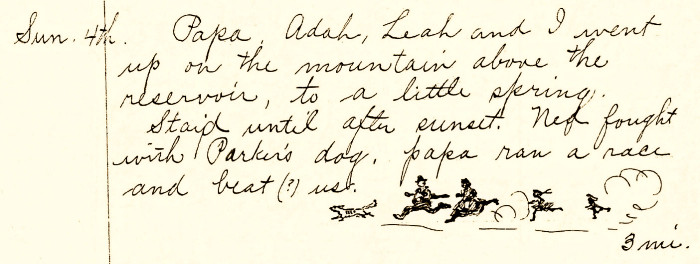 Sun. 4th. Papa, Adah, Leah and I went
up on the mountain above the
reservoir, to a little spring.
Staid until after sunset. Ned fought
with Parker's dog. papa ran a race
and beat (?) us.
3 mi.